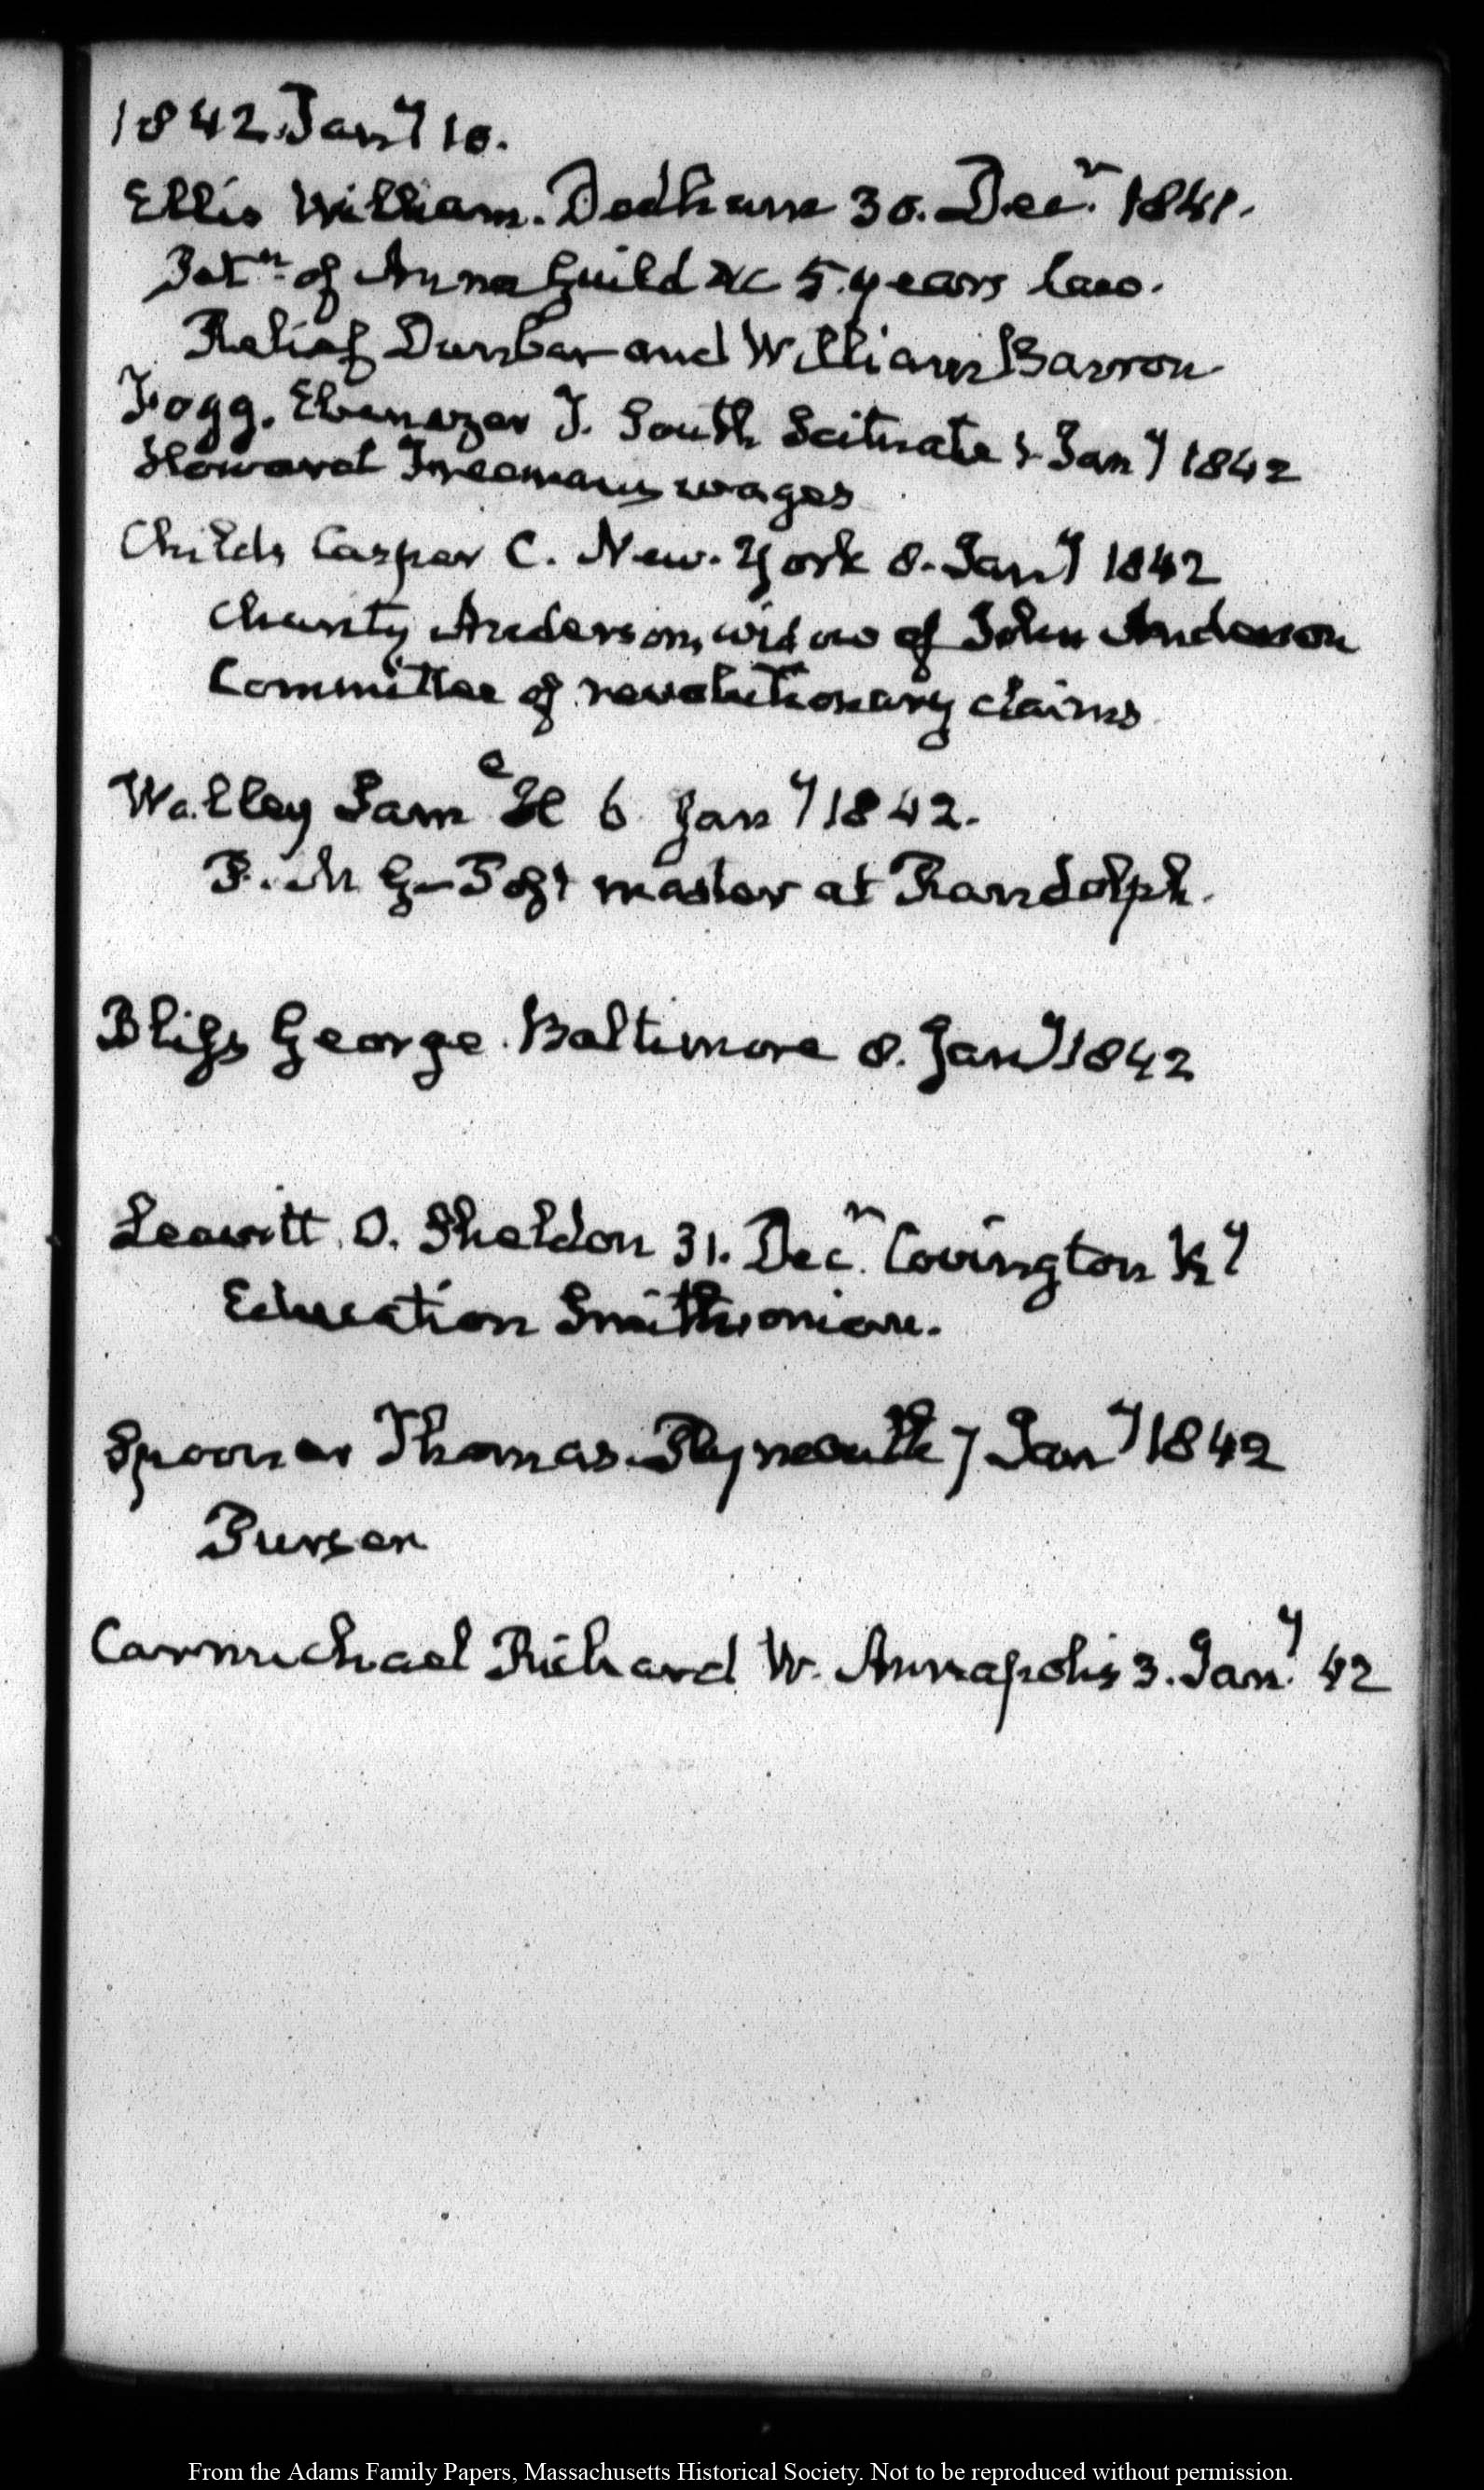 1842. Jany 10.
Ellis William. Dedham 30. Decr. 1841.
Petn. of Anna Guild &c 5. years law.
Relief Dunbar and William Barron
Fogg. Ebenezer T. South Scituate Jany 1842
Howard Freemans wages
Childs Casper C. New-York 8. Jany 1842
Charity Anderson, widow of John Anderson
Committee of revolutionary claims
Walley Saml H 6 Jany 1842.
P. M G-Post master at Randolph.
Bliss George. Baltimore 8. Jany 1842
Leavitt. O. Sheldon 31. Decr. Covington Ky
Education Smithsonian.
Spooner Thomas. Plymouth 7 Jany 1842
Purser
Carmichael Richard W. Annapolis 3. Jany. 42
From the Adams Family Papers, Massachusetts Historical Society. Not to be reproduced without permission.